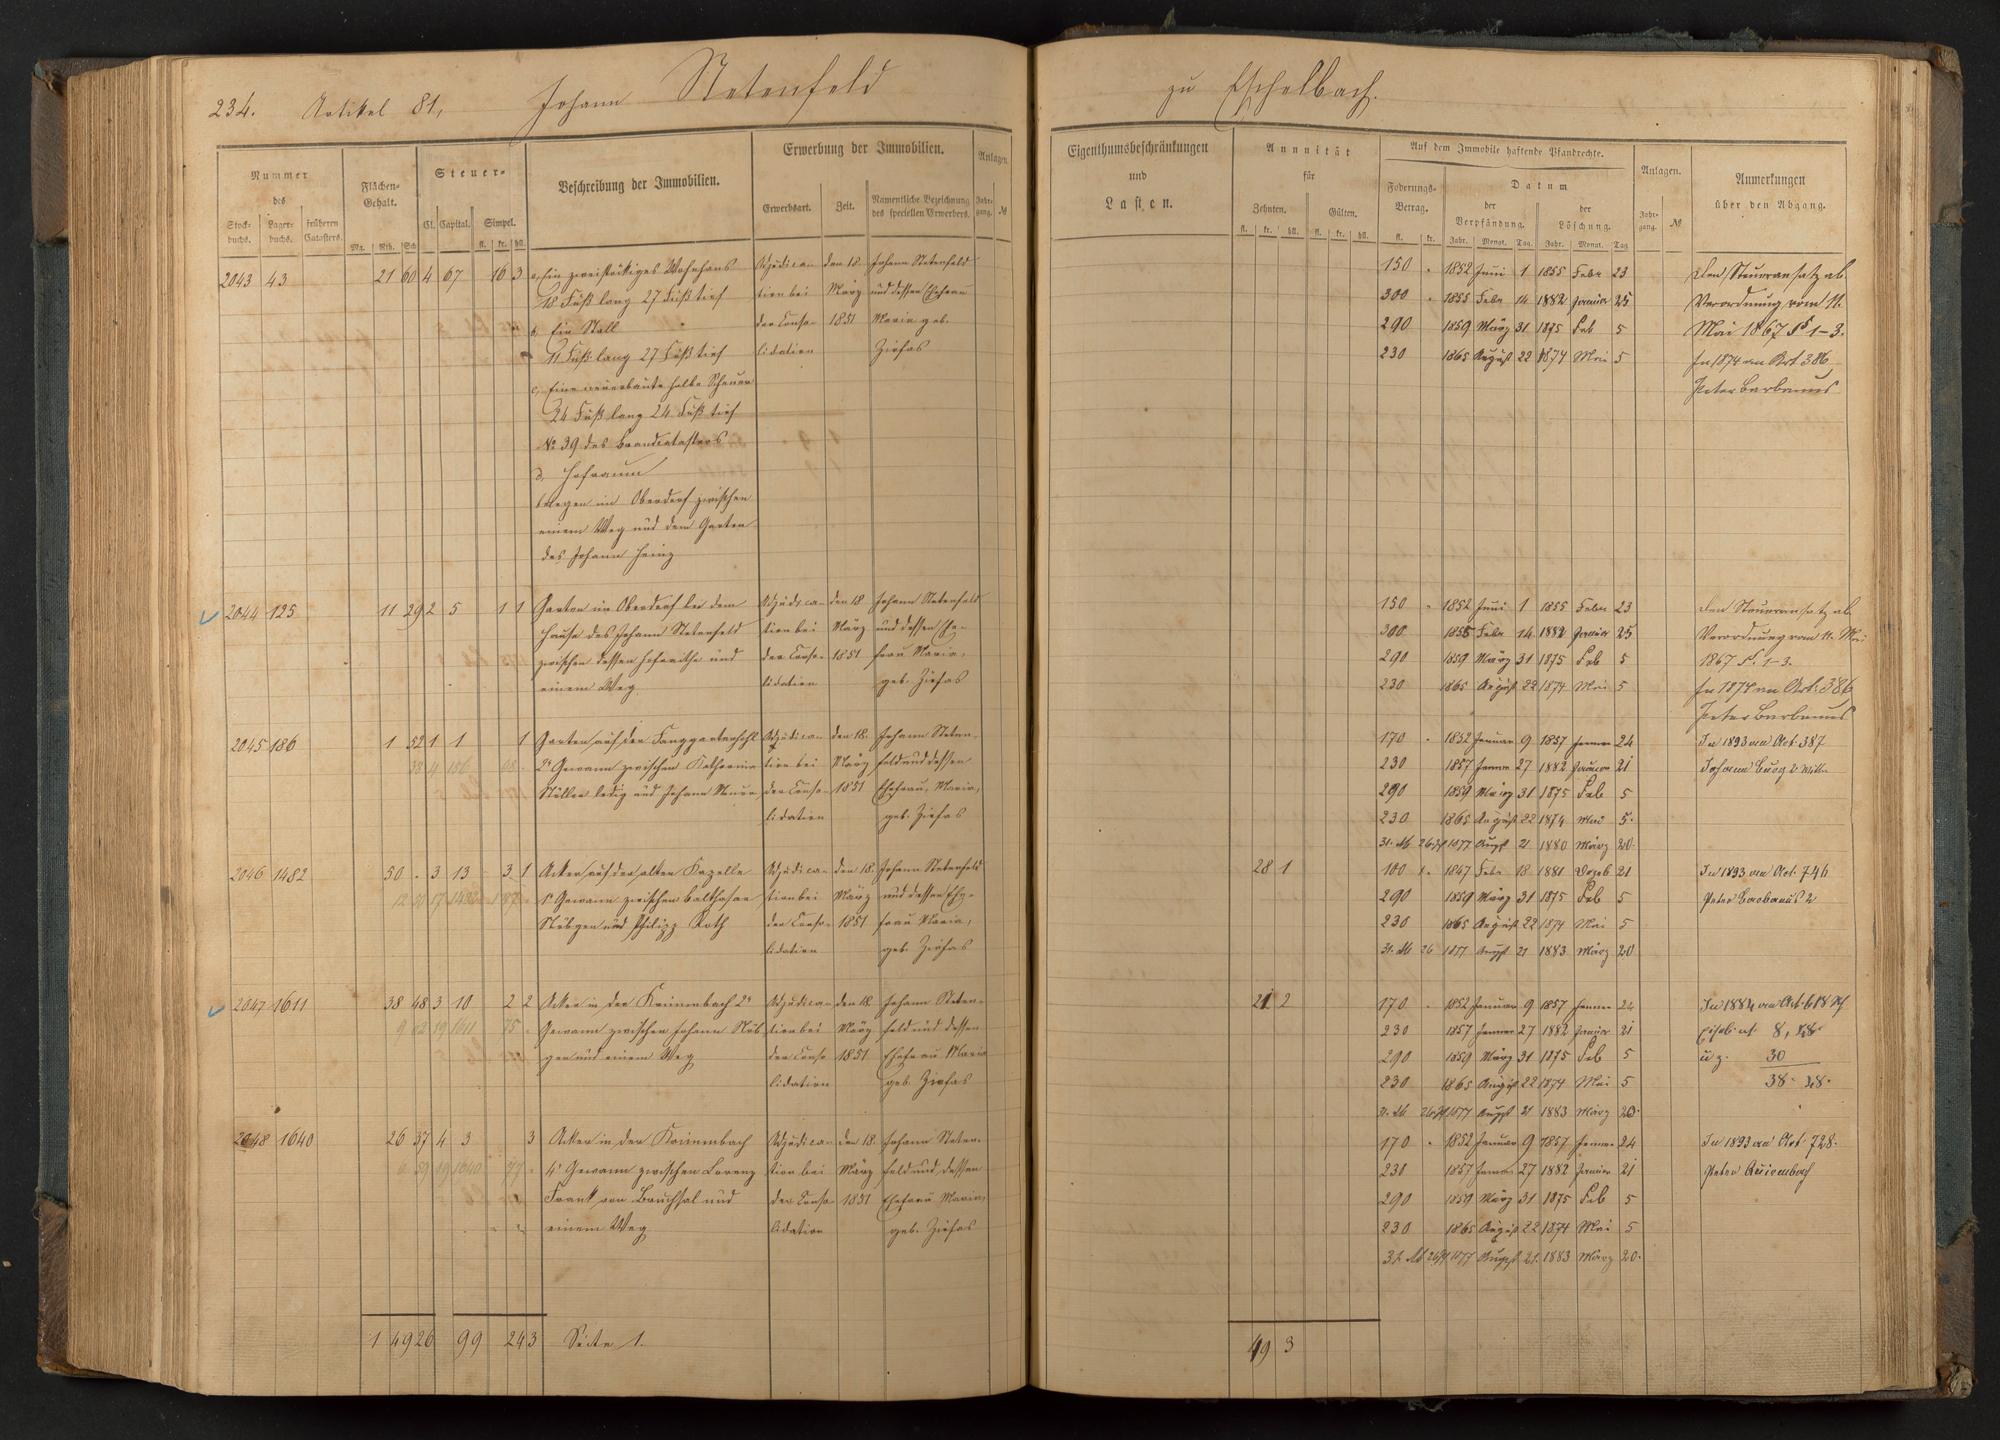 234. Artikel 81, Johann Stetenfeld zu Eschelbach.
Nummer des
Stockbuchs. Lagerbuchs. früheren Catasters.
Flächen-Gehalt.
Mg. Rth. Sch.
Steuer-
Cl. Capital. Simpel.
fl. kr. hll.
Beschreibung der Immobilien.
Erwerbung der Immobilien.
Erwerbsart. Zeit. Namentliche Bezeichnung des speciellen Erwerbers.
Anlagen.
Jahrgang. №
Eigenthumsbeschränkungen
und
Lasten.
Annuität
für
Zehnten. Gülten.
fl. kr. hll. fl. kr. hll.
Auf dem Immobile haftende Pfandrechte.
Foderungs-Betrag.
fl. kr.
Datum
der Verpfändung. der Löschung.
Jahr. Monat. Tag. Jahr. Monat. Tag
Anlagen.
Jahrgang. №
Anmerkungen
über den Abgang.
2043 43 21 60 4 67 16 3 a, Ein zweistöckiges Wohnhaus Adjudica- den 18. Johann Stetenfeld
18 Fuß lang 27 Fuß tief tion bei März und dessen Ehefrau
b, Ein Stall der Conso- 1851 Maria geb.
11 Fuß lang 27 Fuß tief lidation Ziefas
c, Eine neuerbaute halbe Scheuer
24 Fuß lang 24 Fuß tief
№ 39 des Brandcatasters
d, Hofraum
belegen im Oberdorf zwischen
einem Weg und dem Garten
des Johann Heinz
150 - 1852 Juni 1 1855 Febr 23 Den Steueransatz ab.
300 - 1855 Febr 14 1882 Januar 25 Verordnung vom 11.
290 1859 März 31 1875 Feb 5 Mai 1867 §§ 1-3.
230 1865 August 22 1874 Mai 5 In 1874 an Art 386
Peter Barbanus
2044 125 11 29 2 5 1 1 Garten im Oberdorf bei dem Adjudica- den 18 Johann Stetenfeld
Hause des Johann Stetenfeld tion bei März und dessen Ehe-
zwischen dessen Hofraithe und der Conso- 1851 frau Maria,
einem Weg lidation geb. Ziefas
150 - 1852 Juni 1 1855 Febr 23 Den Steueransatz ab.
300 1855 Febr 14. 1882 Januar 25 Verordnung vom 11. Mai
290 1859 März 31 1875 Feb 5 1867 §. 1-3.
230 1865 August 22 1874 Mai 5 In 1874 an Art. 386
Peter Barbanus
2045 186 1 52 1 1 1 Garten auf der Adjudica- den 18. Johann Steten-
2r Gewann zwischen Katharina tion bei März feld und dessen
ledig und Johann der Conso- 1851 Ehefrau, Maria,
lidation geb. Ziefas
170 - 1852 Januar 9 1857 Jenner 24 In 1893 an Art. 387
230 1857 Jenner 27 1882 Januar 21 Johann
290 1859 März 31 1875 Feb 5
230 1865 August 22 1874 Mai 5.
1877 Augst 21 1880 März 20.
2046 1482 50 - 3 13 3 1 Acker auf der alten Kapelle Adjudica- den 18. Johann Stetenfeld
1r Gewann zwischen Balthasar tion bei März und dessen Ehe-
Stübgen und Philipp Roth der Conso- 1851 frau Maria,
lidation geb. Ziefas
28 1 100 1- 1847 Febr 18 1881 Dezeb 21 In 1893 an Art. 746
290 1859 März 31 1875 Feb 5 Peter Barbanus 2
230 1865 August 22 1874 Mai 5
1877 Augst 21 1883 März 20
2047 1611 38 48 3 10 2 2 Acker in der Krimmbach 2r Adjudica- den 18. Johann Steten-
Gewann zwischen Johann Stüb- tion bei März feld und dessen
gen und einem Weg der Conso- 1851 Ehefrau Maria
lidation geb. Ziefas
21 2 170 - 1852 Januar 9 1857 Jenner 24 In 1884 an Art.
230 1857 Jenner 27 1882 Januar 21 8, 48
290 1859 März 31 1875 Feb 5 u z. 30
230 1865 August 22 1874 Mai 5 38. 48.
1877 Augst 21 1883 März 20.
2048 1640 26 37 4 3 3 Acker in der Krimmbach Adjudica- den 18. Johann Steten-
4r Gewann zwischen Lorenz tion bei März feld und dessen
Frank von Bruchsal und der Conso- 1851 Ehefrau Maria,
einem Weg lidation geb. Ziefas
170 - 1852 Januar 9 1857 Jenner 24 In 1893 an Art. 728.
230 1857 Jenner 27 1882 Januar 21 Peter Quirmbach
290 1859 März 31 1875 Feb 5
230 1865 August 22 1874 Mai 5
1877 August 21. 1883 März 20.
1 49 26 99 24 3 Seite 1. 49 3